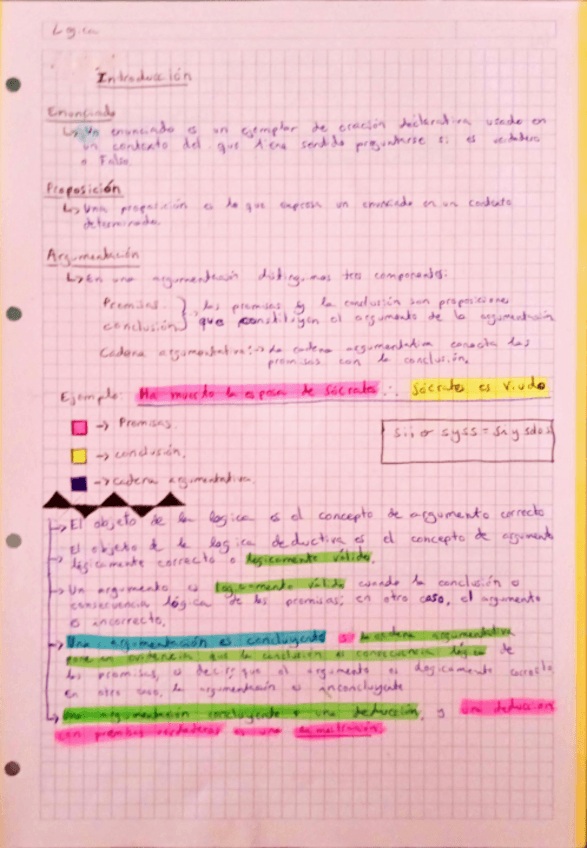 Lógica
Introducción
Enunciado
↳ Un enunciado es un ejemplar de oración declarativa usado en
un contexto del que tiene sentido preguntarse si es verdadero
o Falso.
Proposición
↳ Una proposición es lo que expresa un enunciado en un contexto
determinado.
Argumentación
↳ En una argumentación distinguimos tres componentes:
Premisas.
conclusión
} → Las premisas y la conclusión son proposiciones
que constituyen el argumento de la argumentación
Cadena argumentativa: → La cadena argumentativa conecta las
premisas con la conclusión.
Ejemplo: Ha muerto la esposa de Sócrates ∴ Sócrates es viudo
→ Premisas.
→ conclusión.
→ Cadena argumentativa.
sii o syss = si y sólo si
→ El objeto de la lógica es el concepto de argumento correcto
→ El objeto de la lógica deductiva es el concepto de argumento
lógicamente correcto o lógicamente válido.
→ Un argumento es lógicamente válido cuando la conclusión es
consecuencia lógica de las premisas; en otro caso, el argumento
es incorrecto.
→ Una argumentación es concluyente si la cadena argumentativa
pone en evidencia que la conclusión es consecuencia lógica de
las premisas, es decir, que el argumento es lógicamente correcto,
en otro caso, la argumentación es inconcluyente
→ Una argumentación concluyente es una deducción, y una deducción
con premisas verdaderas es una demostración.